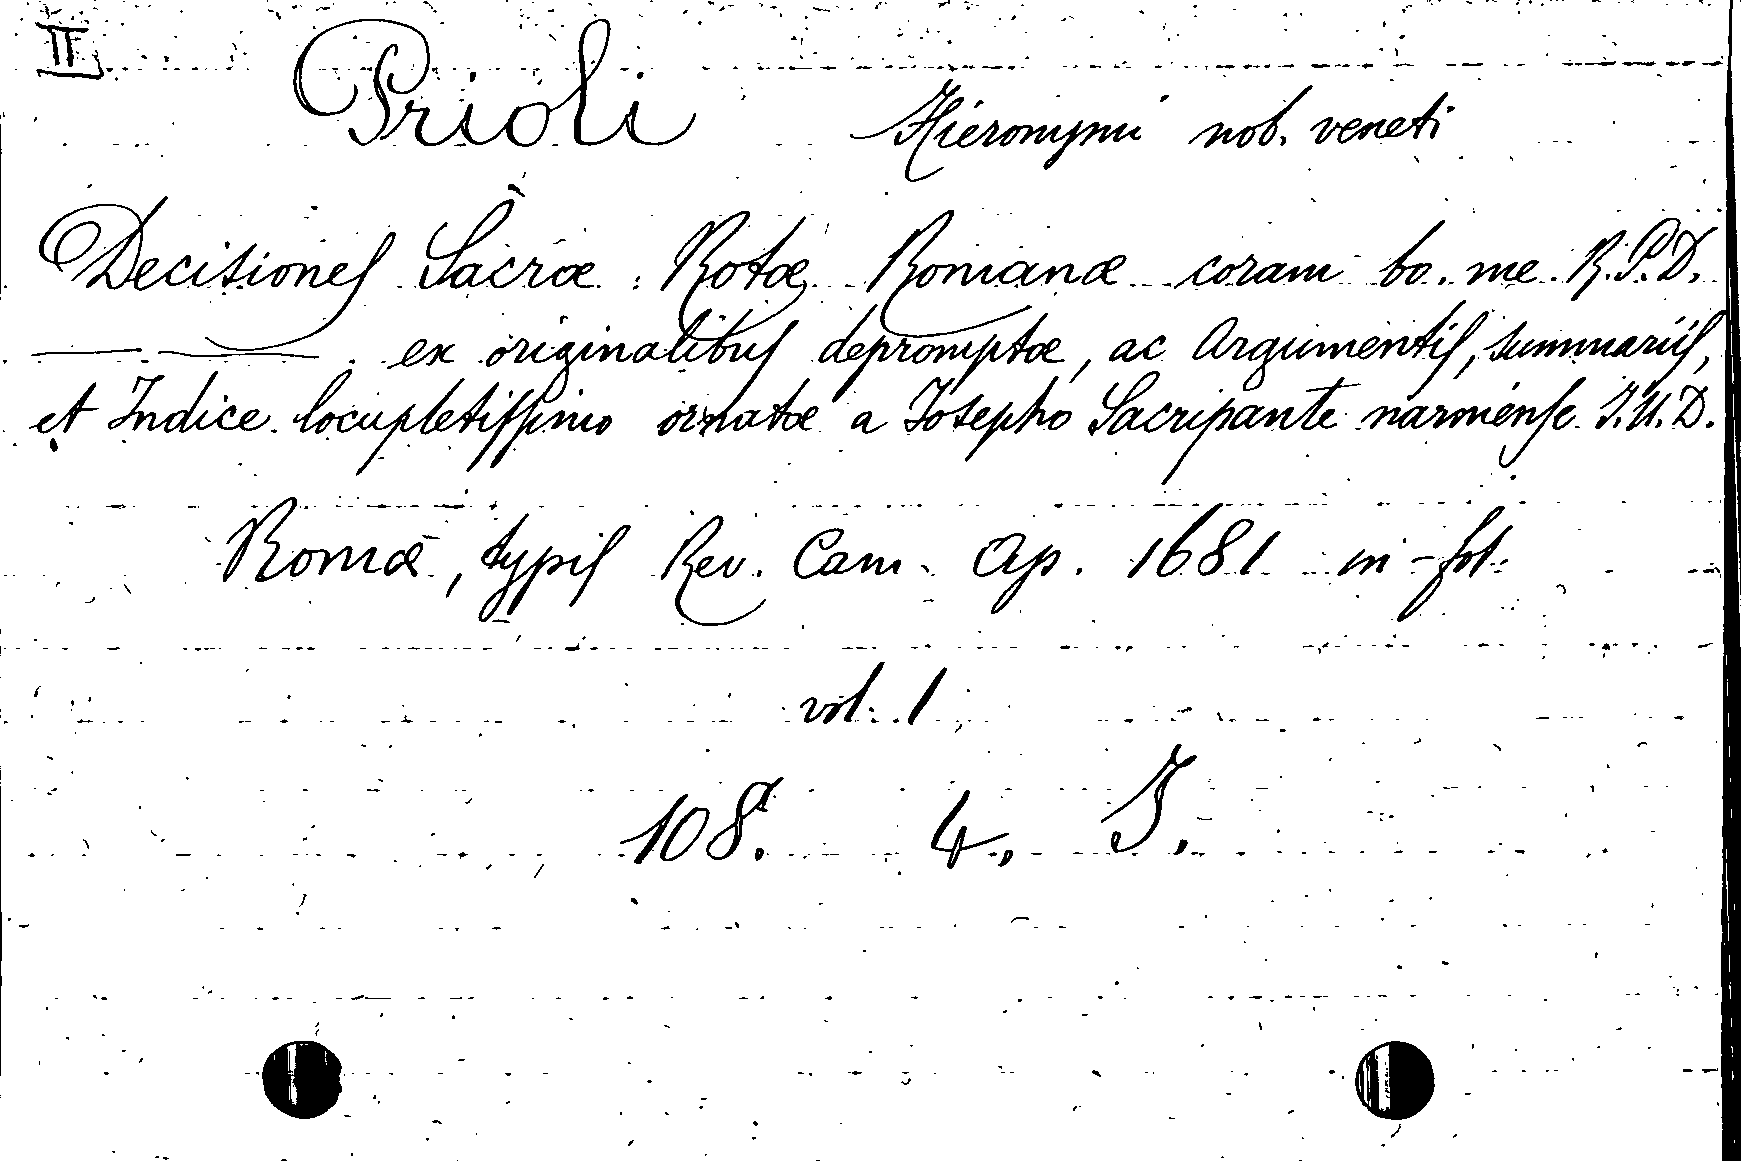 II
Prioli Hieronymi nob. veneti
Decisiones Sacræ Rotæ Romanæ coram bo. me. R.P.D.
—— —— ex originalibus depromptæ, ac Argumentis, summariis,
et Indice locupletissimo ornatæ a Josepho Sacripante narniense J.U.D.
Romæ, typis Rev. Cam. Ap. 1681 in-fol.
vol. 1
108. 4. J.